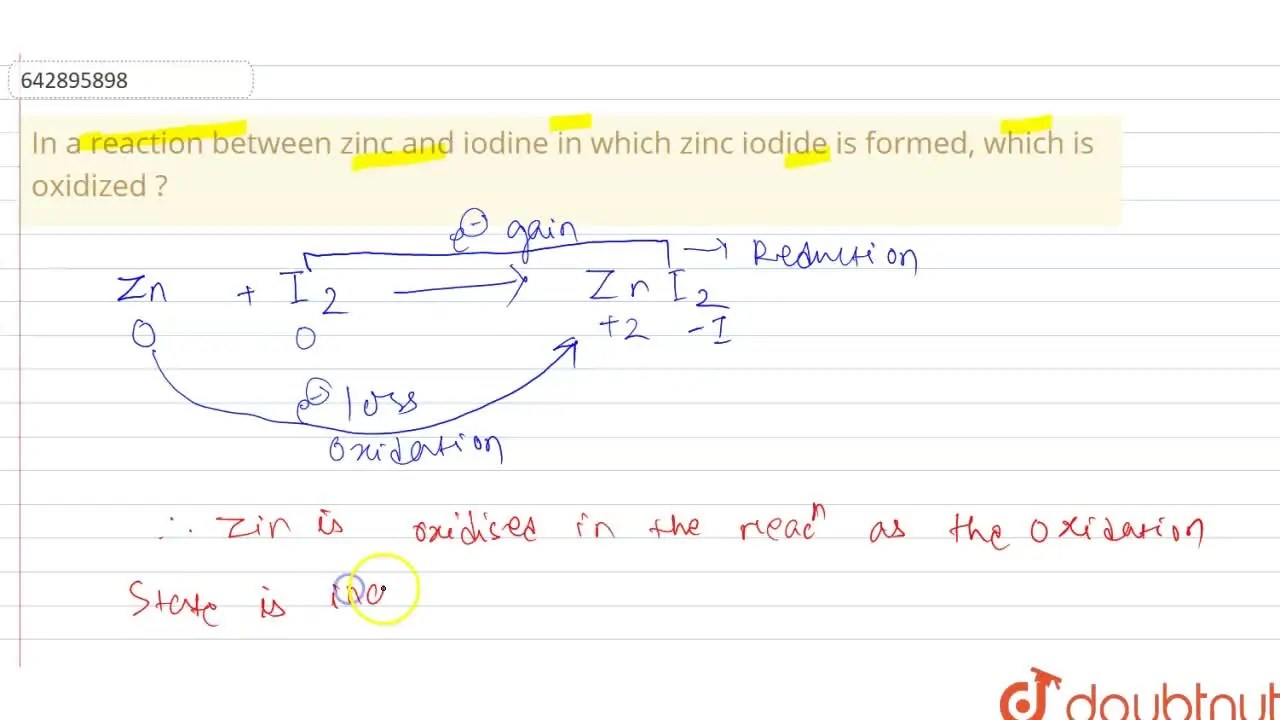 642895898
In a reaction between zinc and iodine in which zinc iodide is formed, which is
oxidized ?
e⊖ gain → Reduction
Zn + I2 → ZnI2
0 0 +2 -I
e⊖ loss
oxidation
∴ Zin is oxidised in the reacn as the oxidation
State is inc
doubtnut